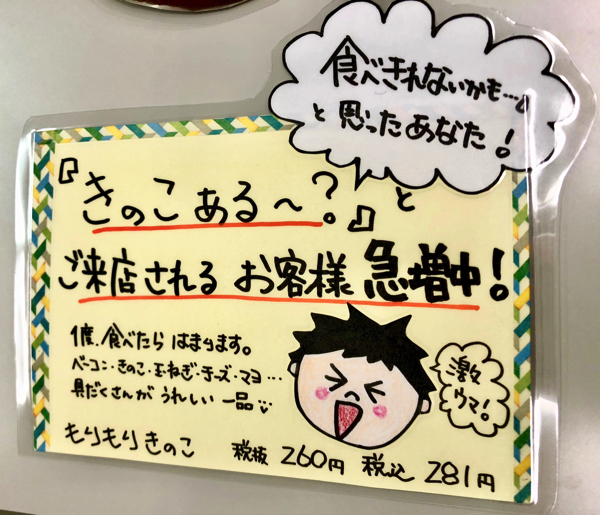 食べきれないかも…。
と思ったあなた!
『きのこある〜?』と
ご来店されるお客様 急増中!
1度、食べたらはまります。
ベーコン・きのこ・玉ねぎ・チーズ・マヨ…
具だくさんがうれしい一品
激
ウマ!
もりもりきのこ 税抜 260円 税込 281円